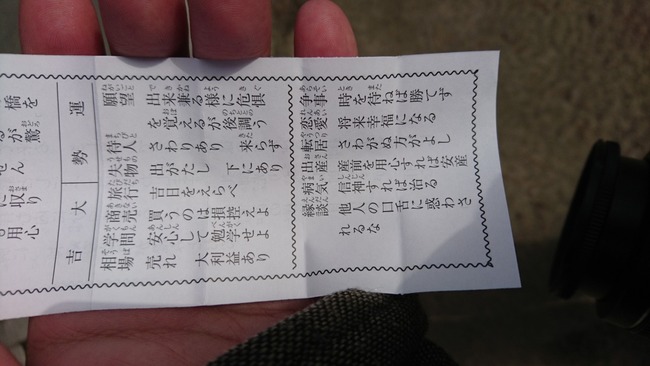 橋を
るが驚
せん
に収り
用心
運勢大吉
願望 出来兼る様に危惧
を覚えるが後調う
待人 さわりあり 来らず
失物 出がたし 下にあり
旅行 吉日をえらべ
商売 買うのは損控えよ
学問 安心して勉学せよ
相場 売れ 大利益あり
争事 時を待ねば勝てず
恋愛 将来幸福になる
転居 さわがぬ方がよし
出産 産前を用心すれば安産
病気 信神すれば治る
縁談 他人の口舌に惑わさ
れるな